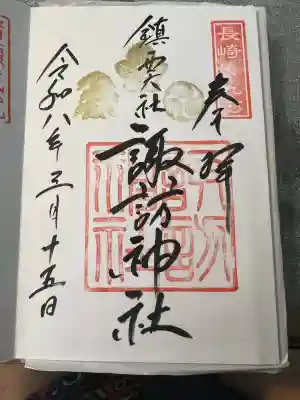 奉拝
鎮西大社
諏訪神社
令和八年三月十五日